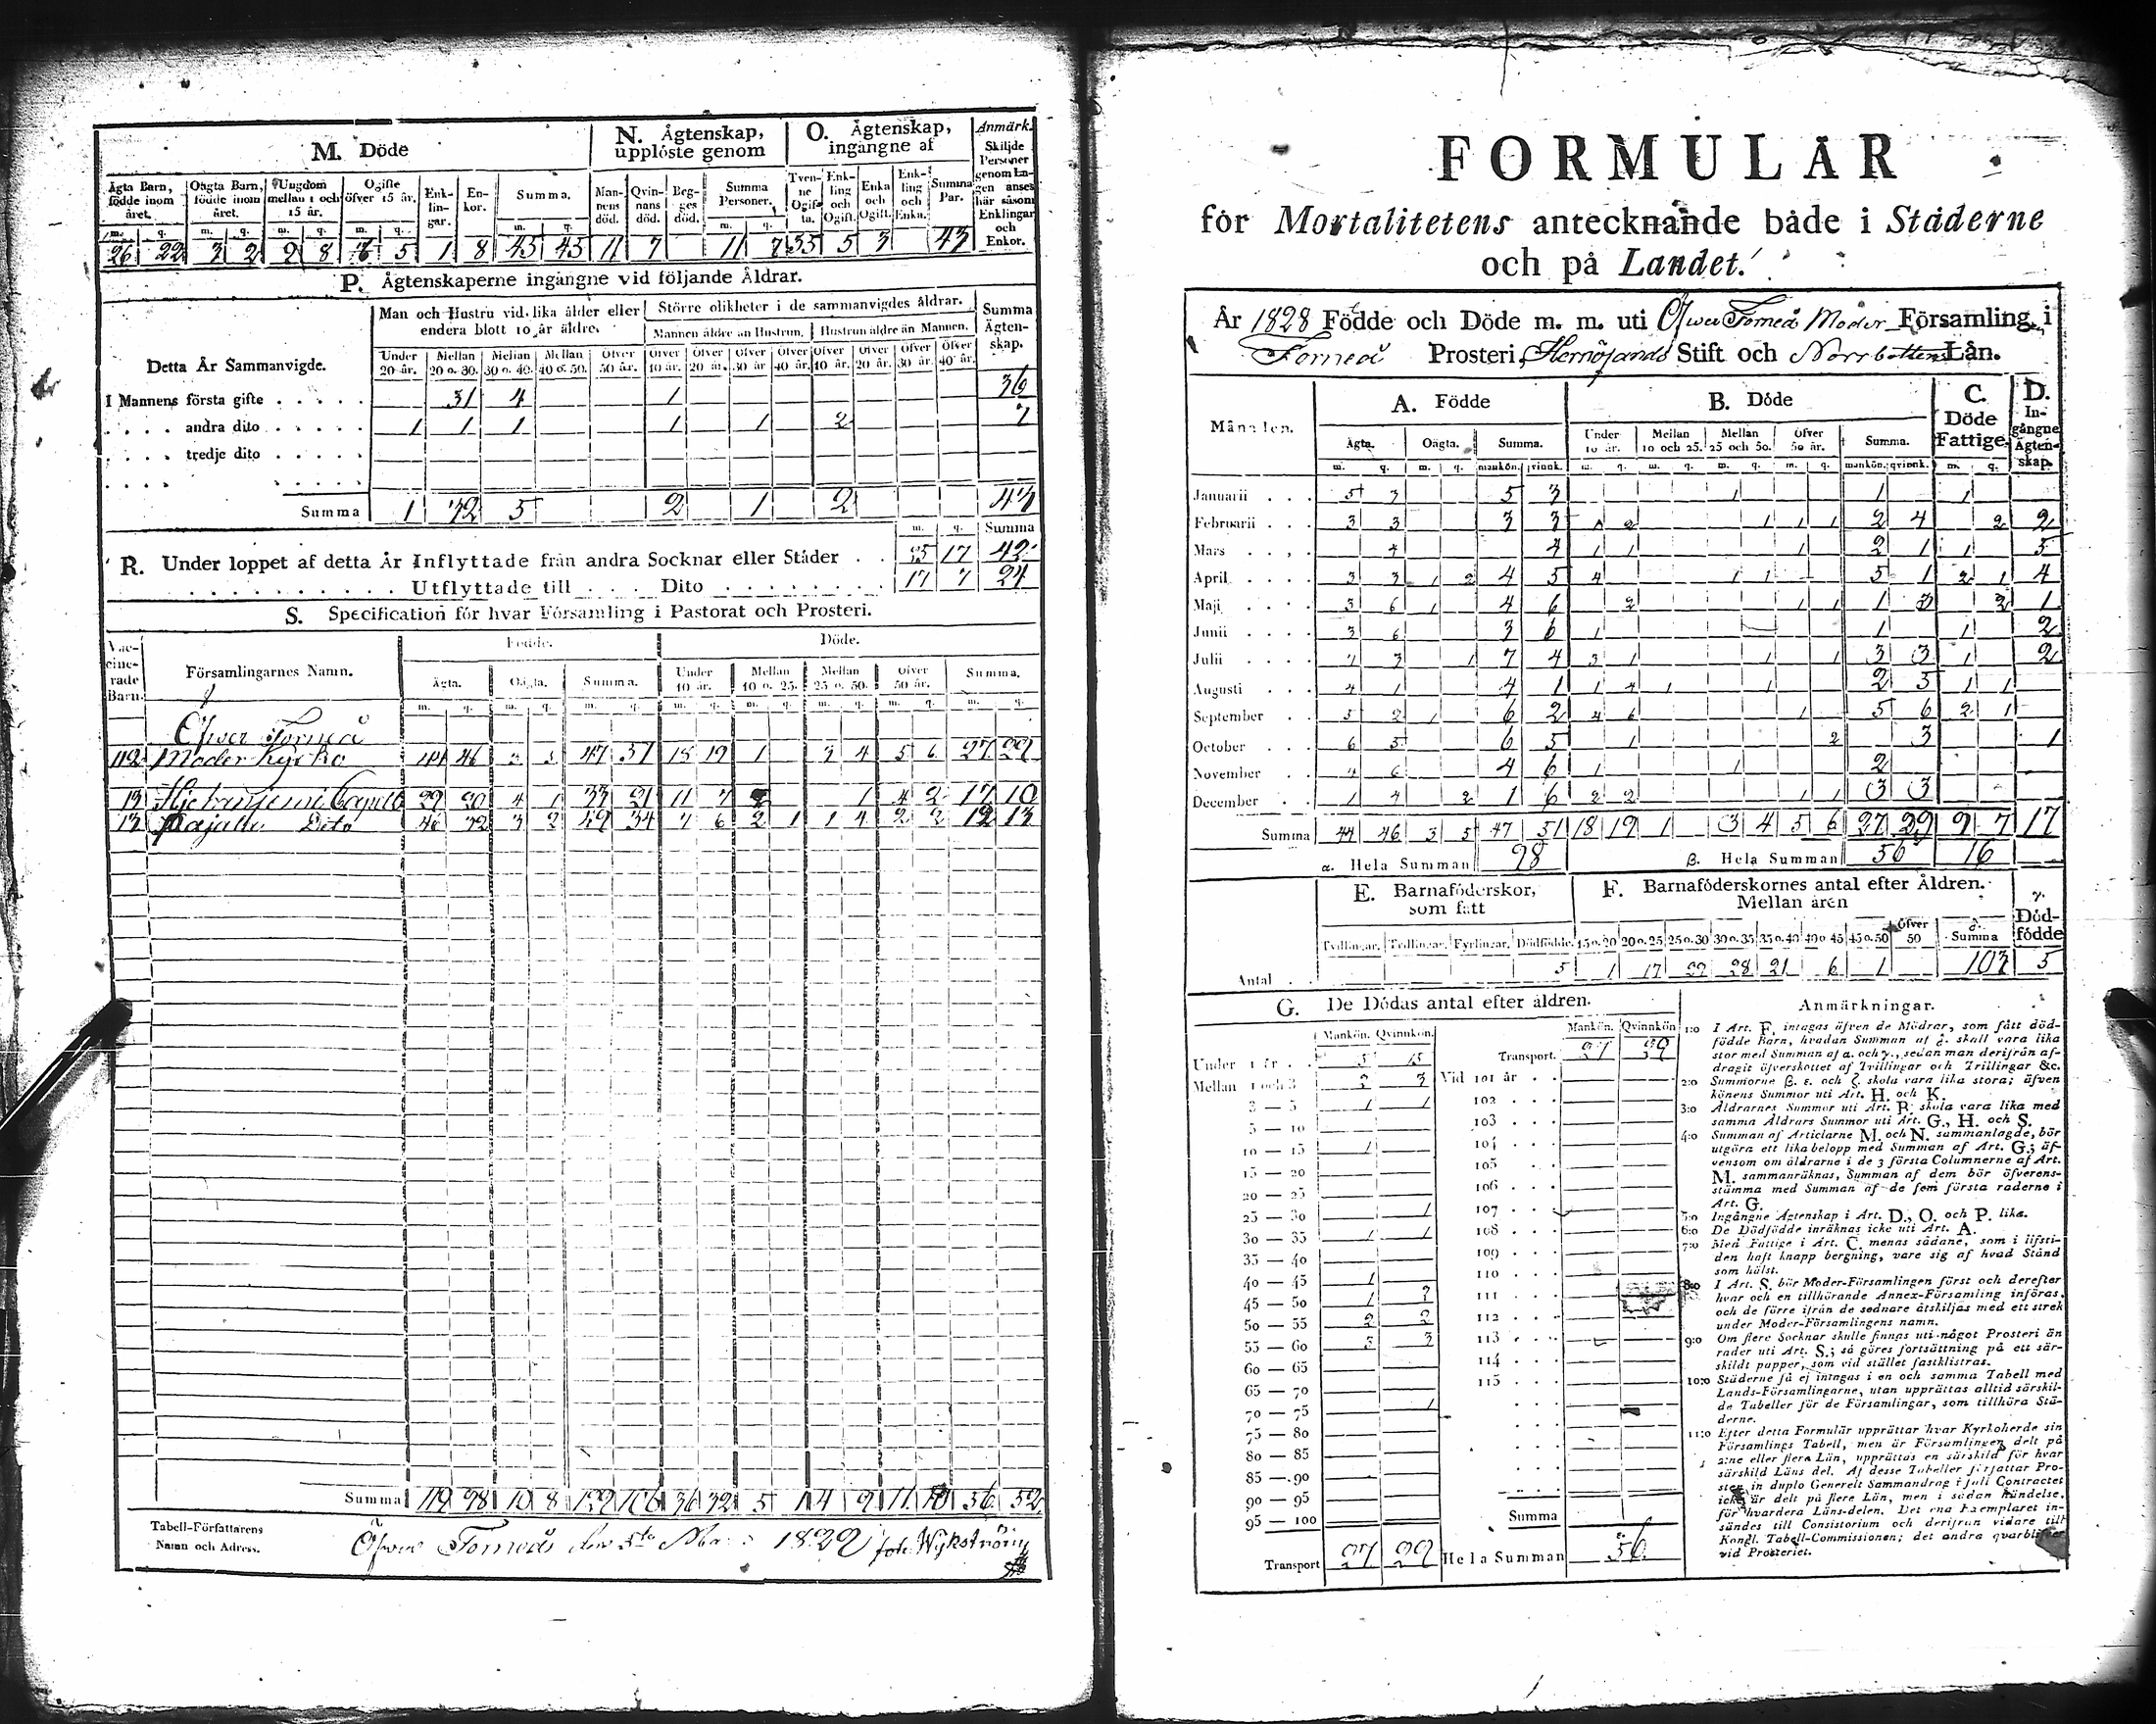 M. Döde
N. Ägtenskap, upplöste genom
O. Ägtenskap, ingångne af
Anmärk. Skiljde Personer genom En- gen anses här såsom Enklingar och Enkor.
Ägta Barn, födde inom året.
Oägta Barn, födde inom året.
Ungdom mellan 1 och 15 år.
Ogifte öfver 15 år.
Enk- lin- gar.
En- kor.
Summa.
Man- nens död.
Qvin- nans död.
Beg- ges död.
Summa Personer.
Tven- ne Ogif- ta.
Enk- ling och Ogift.
Enka och Ogift.
Enk- ling och Enka.
Summa Par.
m. q. m. q. m. q. m. q. m. q. m. q.
26 22 3 2 9 8 6 5 1 8 45 45 11 7 11 7 35 5 3 43
P. Ägtenskaperne ingångne vid följande Åldrar.
Detta År Sammanvigde.
Man och Hustru vid lika ålder eller endera blott 10 år äldre.
Större olikheter i de sammanvigdes åldrar.
Summa Ägten- skap.
Mannen äldre än Hustrun. Hustrun äldre än Mannen.
Under 20 år. Mellan 20 o. 30. Mellan 30 o. 40. Mellan 40 o. 50. Öfver 50 år. Öfver 10 år. Öfver 20 år. Öfver 30 år Öfver 40 år. Öfver 10 år. Öfver 20 år. Öfver 30 år. Öfver 40 år.
I Mannens första gifte . . . . . 31 4 1 36
. . . . andra dito . . . . . 1 1 1 1 1 2 7
. . . . tredje dito . . . . .
Summa 1 32 5 2 1 2 43
m. q. Summa
R. Under loppet af detta År Inflyttade från andra Socknar eller Städer . . 25 17 42
Utflyttade till . . . Dito . . . . . . . . 17 7 24
S. Specification för hvar Församling i Pastorat och Prosteri.
Vac- cine- rade Barn.
Församlingarnes Namn.
Födde.
Döde.
Ägta. Oägta. Summa. Under 10 år. Mellan 10 o. 25. Mellan 25 o. 50. Öfver 50 år. Summa.
m. q. m. q. m. q. m. q. m. q. m. q. m. q. m. q.
Öfver Torneå
112 Moder Kyrka 44 46 3 5 47 51 18 19 1 3 4 5 6 27 29
13 Hietaniemi Capell 29 20 4 1 33 21 11 7 2 1 4 2 17 10
13 Pajala Dito 46 32 3 2 49 34 7 6 2 1 1 4 2 2 12 13
Summa 119 98 10 8 129 106 36 32 5 1 4 9 11 10 56 52
Tabell-Författarens Namn och Adress.
Öfver Torneå den 5te 1829 Joh. Wikström
FORMULÄR
för Mortalitetens antecknande både i Städerne
och på Landet.
År 1828 Födde och Döde m. m. uti Öfver Torneå Moder Församling, i
Torneå Prosteri, Hernösands Stift och Norrbottens Län.
Månaden.
A. Födde
B. Döde
C. Döde Fattige.
D. In- gångne Ägten- skap.
Ägta. Oägta. Summa. Under 10 år. Mellan 10 och 25. Mellan 25 och 50. Öfver 50 år. Summa.
m. q. m. q. mankön. qvinnk. m. q. m. q. m. q. m. q. mankön. qvinnk. m. q.
Januarii . . . 5 3 5 3 1 1 1
Februarii . . . 3 3 3 3 1 2 1 1 1 2 4 2 2
Mars . . . 4 4 1 1 1 2 1 1 5
April . . . . 3 3 1 2 4 5 4 1 1 5 1 2 1 4
Maji . . . . 3 6 1 4 6 2 1 1 1 3 3 1
Junii . . . . 3 6 3 6 1 1 1 2
Julii . . . . 7 3 1 7 4 3 1 1 1 3 3 1 2
Augusti . . . 4 1 4 1 1 4 1 1 2 5 1 1
September . . 5 2 1 6 2 4 6 1 5 6 2 1
October . . . 6 5 6 5 1 2 3 1
November . . 4 6 4 6 1 1 2
December . . 1 4 2 1 6 2 2 1 1 3 3
Summa 44 46 3 5 47 51 18 19 1 3 4 5 6 27 29 9 7 17
α. Hela Summan 98
β. Hela Summan 56 16
E. Barnaföderskor, som fått
F. Barnaföderskornes antal efter Åldren. Mellan åren
γ. Död- födde
Tvillingar. Trillingar. Fyrlingar. Dödfödde. 15 o. 20 20 o. 25 25 o. 30 30 o. 35 35 o. 40 40 o 45 45 o. 50 Öfver 50 δ. Summa
Antal . . 5 1 17 29 28 21 6 1 103 5
G. De Dödas antal efter åldren.
Mankön. Qvinnkön.
Under 1 år . . 15
Mellan 1 och 3 3
3 — 5 1 1
5 — 10
10 — 15 1
15 — 20
20 — 25
25 — 30 1
30 — 35 1 1
35 — 40
40 — 45 1
45 — 50 1 2
50 — 55 2 2
55 — 60 3 3
60 — 65
65 — 70
70 — 75 1
75 — 80
80 — 85
85 — 90
90 — 95
95 — 100
Transport 27 29
Mankön. Qvinnkön
Transport. 27 29
Vid 101 år . .
102 . . .
103 . . .
104 . . .
105 . . .
106 . . .
107 . . .
108 . . .
109 . . .
110 . . .
111 . . .
112 . . .
113 . . .
114 . . .
115 . . .
Summa
Hela Summan ε. 56
Anmärkningar.
1:o I Art. F. intagas äfven de Mödrar, som fått död-
födde Barn, hvadan Summan af δ. skall vara lika
stor med Summan af α. och γ., sedan man derifrån af-
dragit öfverskottet af Tvillingar och Trillingar &c.
2:o Summorne β. ε. och ζ. skola vara lika stora; äfven
könens Summor uti Art. H. och K.
3:o Åldrarnes Summor uti Art. B. skola vara lika med
samma Åldrars Summor uti Art. G., H. och S.
4:o Summan af Articlarne M. och N. sammanlagde, bör
utgöra ett lika belopp med Summan af Art. G.; äf-
vensom om åldrarne i de 3 första Columnerne af Art.
M. sammanräknas, Summan af dem bör öfverens-
stämma med Summan af de fem första raderne i
Art. G.
5:o Ingångne Ägtenskap i Art. D., O. och P. lika.
6:o De Dödfödde inräknas icke uti Art. A.
7:o Med Fattige i Art. C. menas sådane, som i lifsti-
den haft knapp bergning, vare sig af hvad Stånd
som hälst.
8:o I Art. S. bör Moder-Församlingen först och derefter
hvar och en tillhörande Annex-Församling införas,
och de förre ifrån de sednare åtskiljas med ett strek
under Moder-Församlingens namn.
9:o Om flere Socknar skulle finnas uti något Prosteri än
rader uti Art. S.; så göres fortsättning på ett sär-
skildt papper, som vid stället fastklistras.
10:o Städerne få ej intagas i en och samma Tabell med
Lands-Församlingarne, utan upprättas alltid särskil-
de Tabeller för de Församlingar, som tillhöra Stä-
derne.
11:o Efter detta Formulär upprättar hvar Kyrkoherde sin
Församlings Tabell, men är Församlingen delt på
2:ne eller flera Län, upprättas en särskild för hvar
särskild Läns del. Af desse Tabeller författar Pro-
sten in duplo Generelt Sammandrag i fall Contractet
icke är delt på flere Län, men i sådan händelse,
för hvardera Läns-delen. Det ena Exemplaret in-
sändes till Consistorium och derifrån vidare till
Kongl. Tabell-Commissionen; det andra qvarblifver
vid Prosteriet.